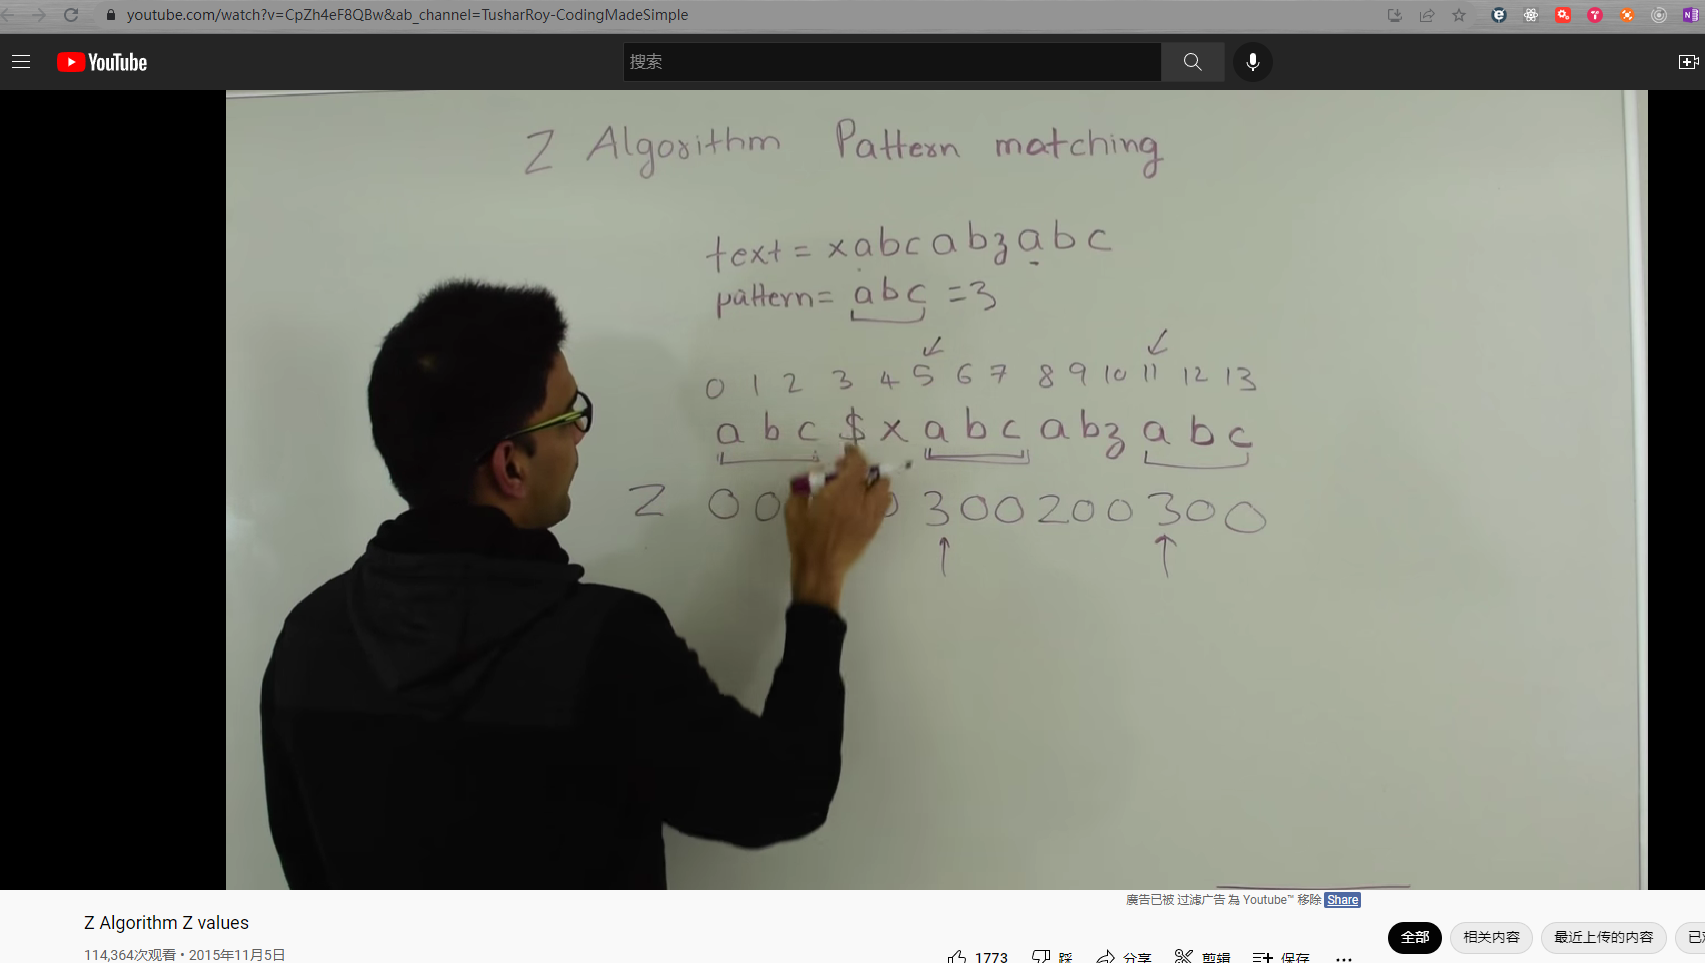 youtube.com/watch?v=CpZh4eF8QBw&ab_channel=TusharRoy-CodingMadeSimple
YouTube
搜索
Z Algorithm Pattern matching
text = xabcabzabc
pattern = abc = 3
0 1 2 3 4 5 6 7 8 9 10 11 12 13
a b c $ x a b c a b z a b c
Z 0 0 0 3 0 0 2 0 0 3 0 0
廣告已被 过滤广告 為 Youtube™ 移除 Share
Z Algorithm Z values
114,364次观看 • 2015年11月5日
1773 踩 分享 剪辑 保存 ...
全部 相关内容 最近上传的内容